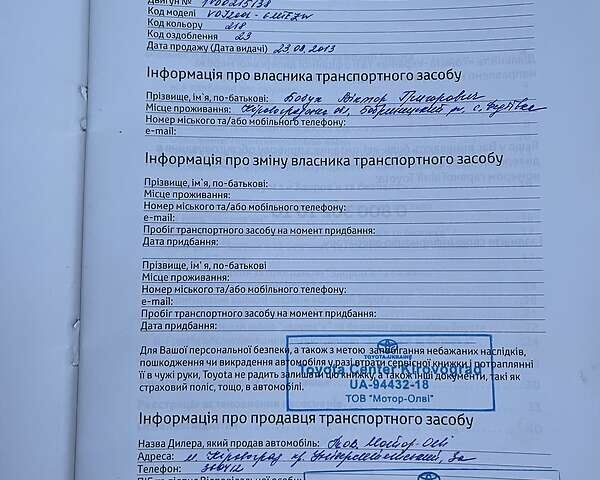 Двигун №
Код моделі
Код кольору 218
Код оздоблення 23
Дата продажу (Дата видачі) 23.08.2013
Інформація про власника транспортного засобу
Прізвище, ім`я, по-батькові: Віктор Григорович
Місце проживання: Кіровоградська обл, Бобринецький р, с.
Номер міського та/або мобільного телефону:
e-mail:
Інформація про зміну власника транспортного засобу
Прізвище, ім`я, по-батькові:
Місце проживання:
Номер міського та/або мобільного телефону:
e-mail:
Пробіг транспортного засобу на момент придбання:
Дата придбання:
Прізвище, ім`я, по-батькові
Місце проживання:
Номер міського та/або мобільного телефону:
e-mail:
Пробіг транспортного засобу на момент придбання:
Дата придбання:
Для Вашої персональної безпеки, а також з метою запобігання небажаних наслідків,
пошкодження чи викрадення автомобіля у разі втрати сервісної книжки і потраплянні
її в чужі руки, Toyota не радить залишати цю книжку, а також інші документи, такі як
страховий поліс, тощо, в автомобілі.
TOYOTA-UKRAINE
Toyota Center Kirovograd
UA-94432-18
ТОВ "Мотор-Олві"
Інформація про продавця транспортного засобу
Назва Дилера, який продав автомобіль: Тов. Мотор-Олві
Адреса: м. Кіровоград
Телефон: